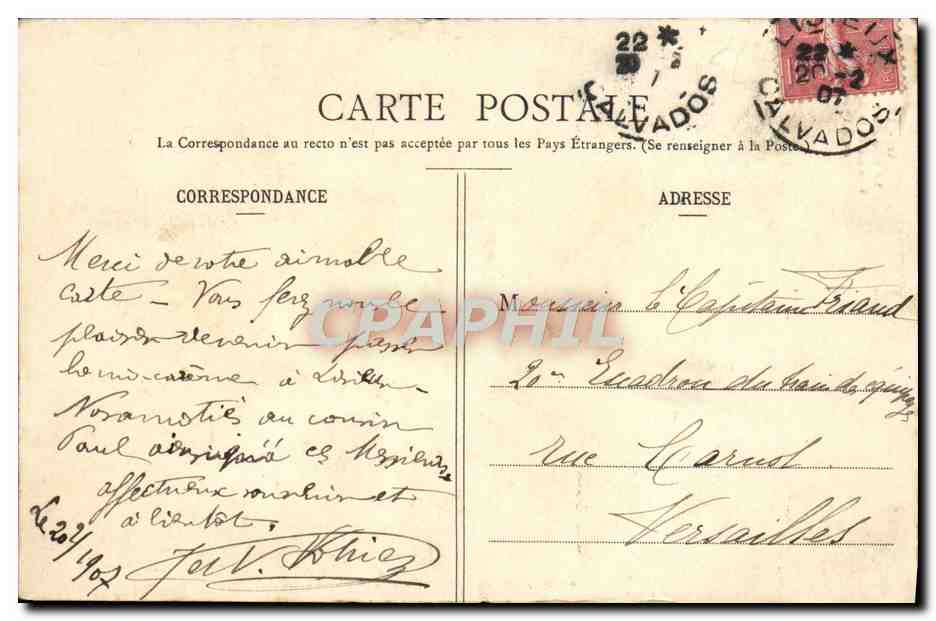 22 *
20
CALVADOS
LISIEUX
22 *
20 -2
07
CALVADOS
CARTE POSTALE
La Correspondance au recto n'est pas acceptée par tous les Pays Étrangers. (Se renseigner à la Poste.)
CORRESPONDANCE
ADRESSE
Merci de votre aimable
carte – Vous ferez
plaisir de venir passer
la mi-carême à Lisieux –
Nos amitiés au cousin
Paul ainsi qu'à ces Messieurs
affectueux souvenir et
à bientôt.
Le 20 2/1907
Monsieur le Capitaine Friaud
20me Escadron du train des équipages
rue Carnot
Versailles
CPAPHIL